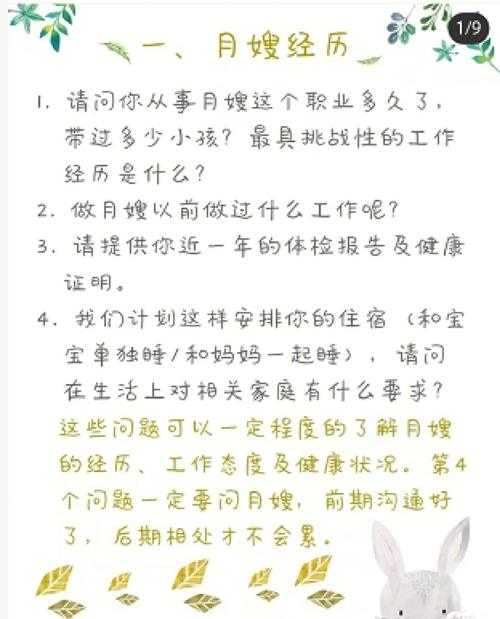 1/9
一、月嫂经历
1. 请问你从事月嫂这个职业多久了，
带过多少小孩？最具挑战性的工作
经历是什么？
2. 做月嫂以前做过什么工作呢？
3. 请提供你近一年的体检报告及健康
证明。
4. 我们计划这样安排你的住宿（和宝
宝单独睡/和妈妈一起睡），请问
在生活上对相关家庭有什么要求？
这些问题可以一定程度的了解月嫂
的经历、工作态度及健康状况。第4
个问题一定要问月嫂，前期沟通好
了，后期相处才不会累。